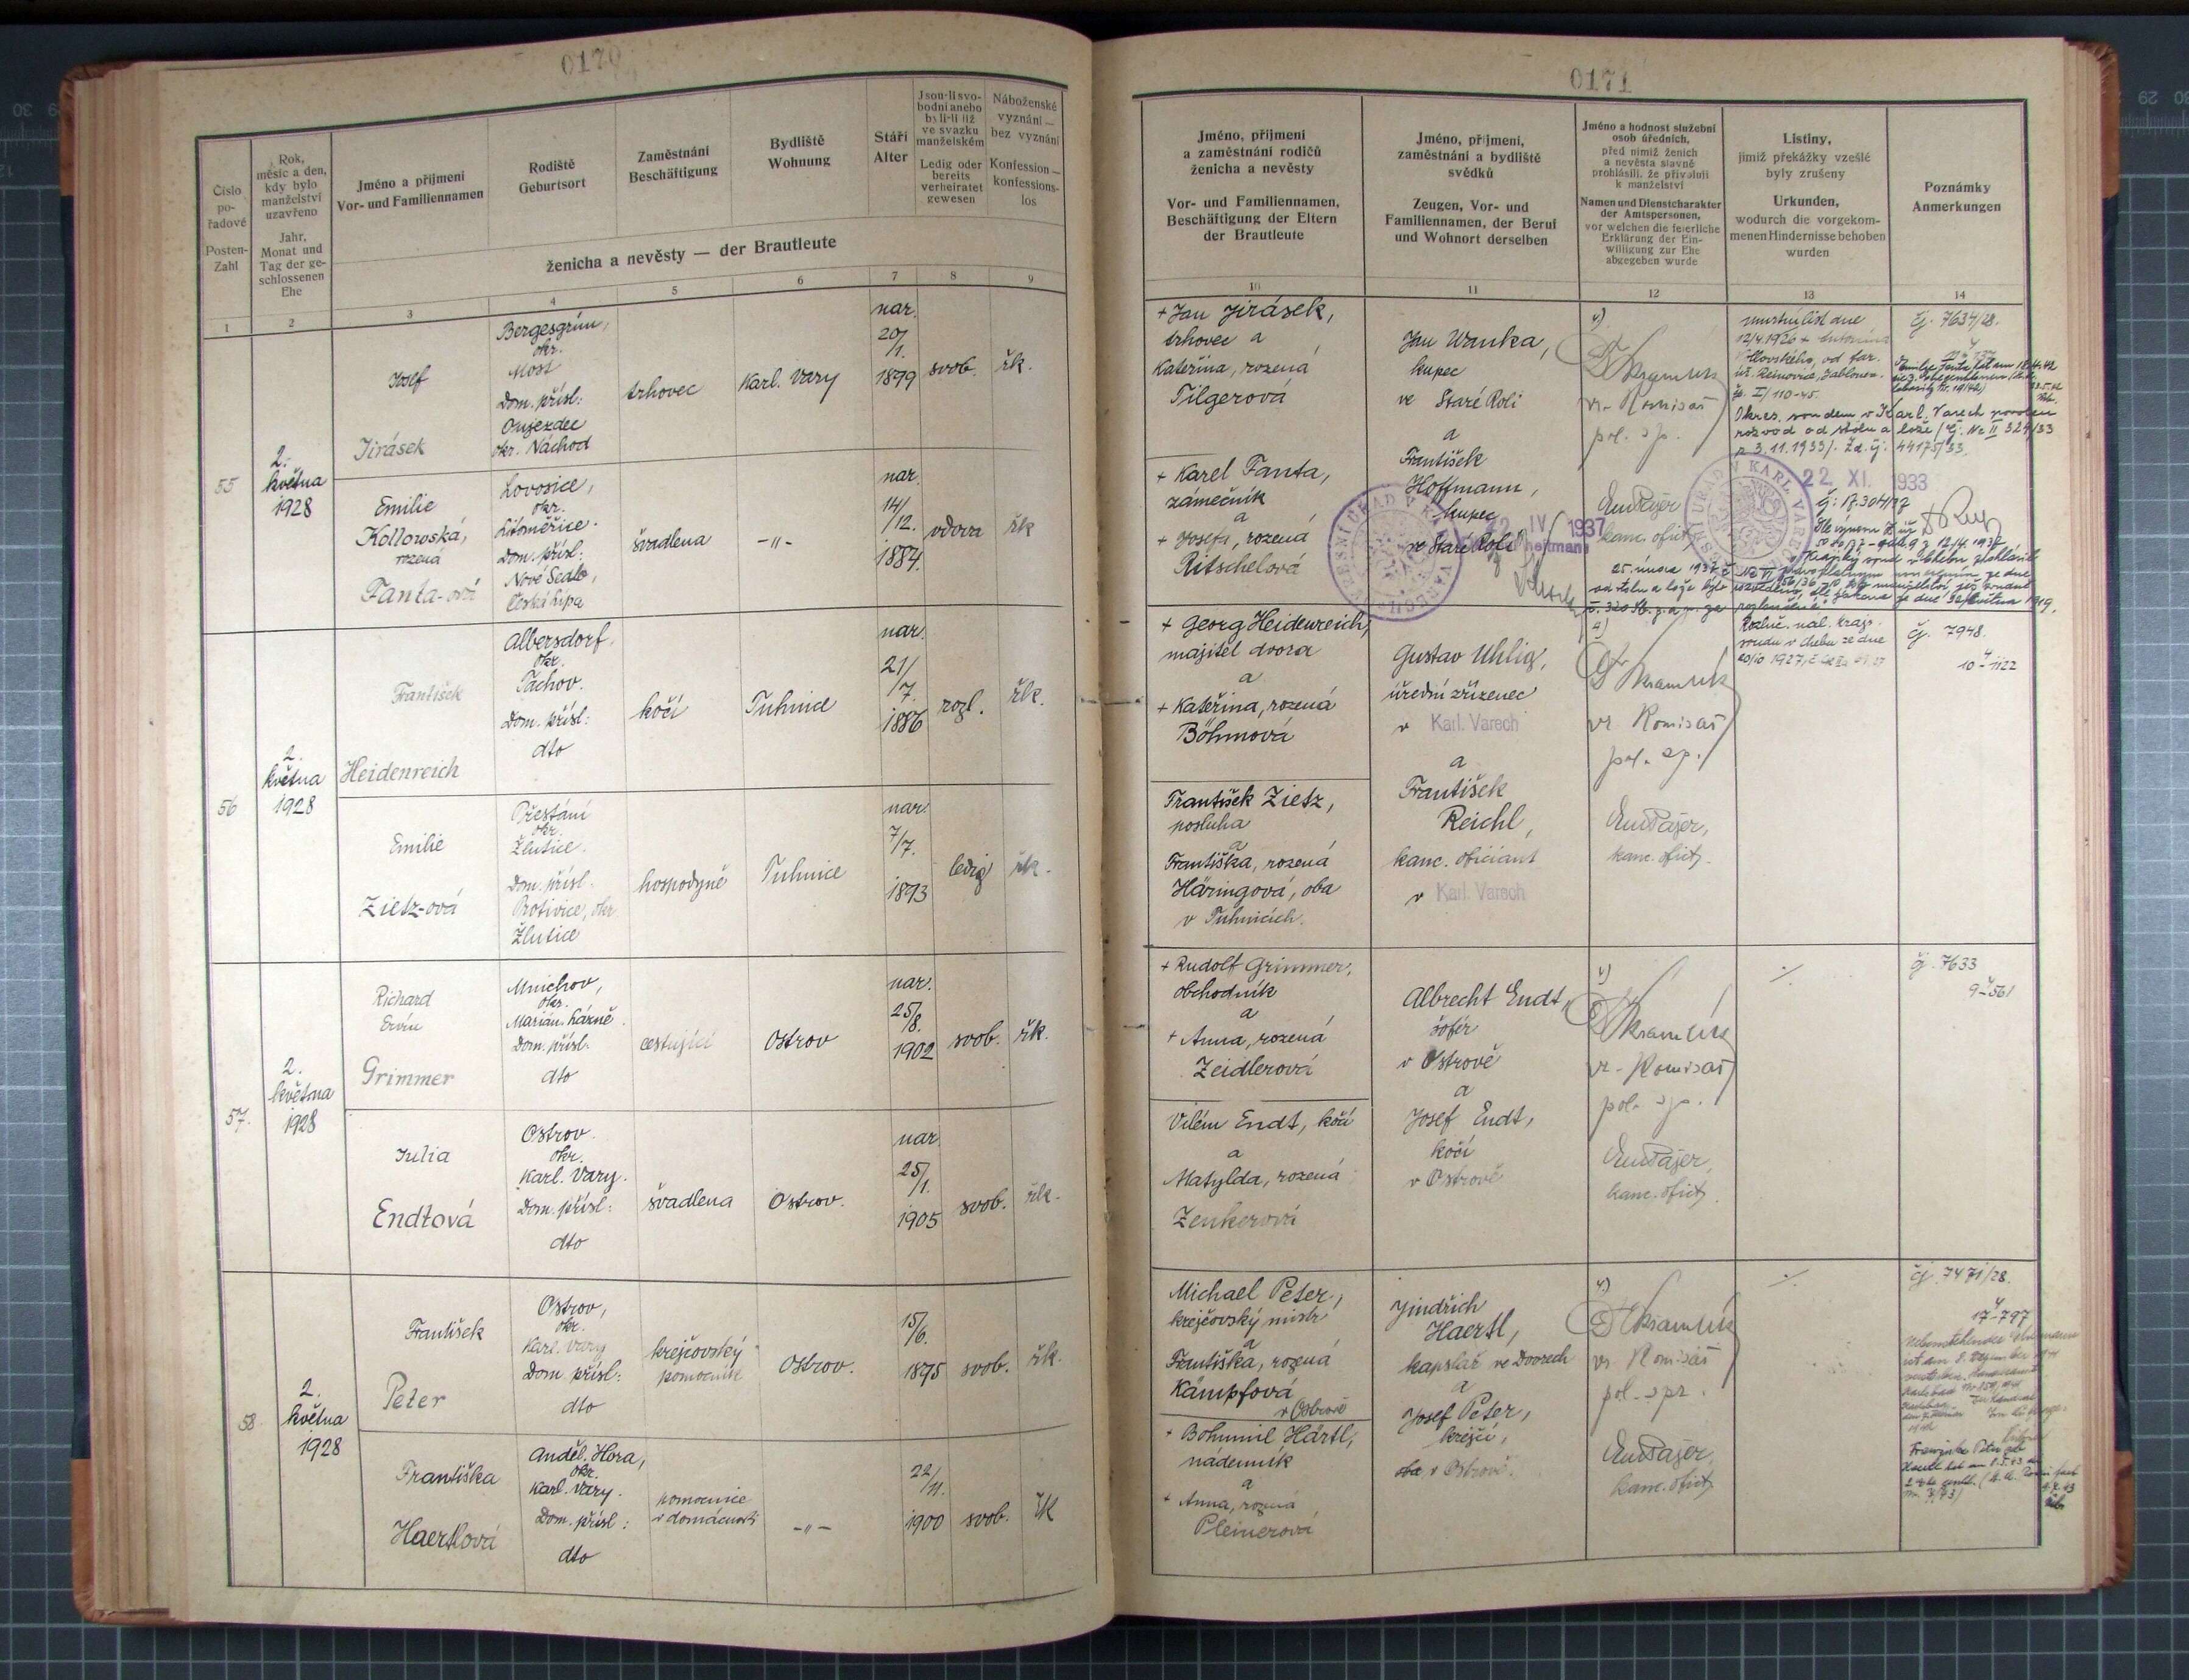 0170
Číslo
po-
řadové
Posten-
Zahl
Rok,
měsíc a den,
kdy bylo
manželství
uzavřeno
Jahr,
Monat und
Tag der ge-
schlossenen
Ehe
Jméno a příjmení
Vor- und Familiennamen
Rodiště
Geburtsort
Zaměstnání
Beschäftigung
Bydliště
Wohnung
Stáří
Alter
Json-li svo-
bodni anebo
byli-li již
ve svazku
manželském
Ledig oder
bereits
verheiratet
gewesen
Náboženské
vyznání —
bez vyznání
Konfession —
Konfessions-
los
ženicha a nevěsty — der Brautleute
1 2 3 4 5 6 7 8 9
55
2.
května
1928
Josef
Jirásek
Bergesgrün,
okr.
Most
Dom. přísl:
Oujezdec
okr. Náchod
trhovec
Karl. Vary
nar.
20/
1.
1899
svob.
řk.
Emilie
Kollowská,
rozená
Fanta-ová
Lovosice,
okr.
Litoměřice.
Dom. přísl:
Nové Sedlo,
Česká Lípa
švadlena
-"-
nar.
14/
12.
1884.
vdova
řk
56
2.
května
1928
František
Heidenreich
Albersdorf,
okr.
Tachov.
Dom. přísl:
dto
kočí
Tuhnice
nar.
21/
7.
1886
rozl.
řk.
Emilie
Zietz-ová
Přestání
okr.
Žlutice.
Dom. přísl.
Protivice, okr
Žlutice
hospodyně
Tuhnice
nar.
7/7.
1893
ledig
řk.
57.
2.
května
1928
Richard
Ervín
Grimmer
Mnichov,
okr.
Marián. Lázně.
Dom. přísl.
dto
cestující
Ostrov
nar.
25/
8.
1902
svob.
řk.
Julia
Endtová
Ostrov.
okr.
Karl. Vary.
Dom. přísl:
dto
švadlena
Ostrov.
nar.
25/
1.
1905
svob.
řk.
58
2.
května
1928
František
Peter
Ostrov,
okr.
Karl. Vary
Dom. přísl:
dto
krejčovský
pomocník
Ostrov.
15/
6.
1895
svob.
řk.
Františka
Haertlová
Anděl. Hora,
okr.
Karl. Vary.
Dom. přísl:
dto
pomocnice
v domácnosti
-"-
22/
11.
1900
svob.
řk
0171
Jméno, příjmení
a zaměstnání rodičů
ženicha a nevěsty
Vor- und Familiennamen,
Beschäftigung der Eltern
der Brautleute
Jméno, příjmení,
zaměstnání a bydliště
svědků
Zeugen, Vor- und
Familiennamen, der Beruf
und Wohnort derselben
Jméno a hodnost služební
osob úředních,
před nimiž ženich
a nevěsta slavně
prohlásili, že přivolují
k manželství
Namen und Dienstcharakter
der Amtspersonen,
vor welchen die feierliche
Erklärung der Ein-
willigung zur Ehe
abgegeben wurde
Listiny,
jimiž překážky vzešlé
byly zrušeny
Urkunden,
wodurch die vorgekom-
menen Hindernisse behoben
wurden
Poznámky
Anmerkungen
10 11 12 13 14
+ Jan Jirásek,
trhovec a
Kateřina, rozená
Pilgerová
+ Karel Fanta,
zámečník
a
+ Josefa, rozená
Ritschelová
Jan Wanka,
kupec
ve Staré Roli
a
František
Hoffmann,
kupec
ve Staré Roli
vr. Komisař
pol. sp.
kanc. ofict
úmrtní list dne
12/4.1926
čj. 7634/28.
Okres. soudem v Karl. Varech povolen
rozvod od stolu a lože
3.11.1933
44175/33.
22 XI. 1933
IV 1937
25. února 1937
+ Georg Heidenreich,
majitel dvora
a
+ Kateřina, rozená
Böhmová
František Zietz,
posluha
a
Františka, rozená
Häringová, oba
v Tuhnicích.
Gustav Uhlig,
úřední zřízenec
v Karl. Varech
a
František
Reichl,
kanc. oficiant
v Karl. Varech
vr. Komisař
pol. sp.
kanc. ofict.
Rozluč. nál. kraj.
soudu v Chebu ze dne
čj. 7948.
10-1122
+ Rudolf Grimmer,
obchodník
a
+ Anna, rozená
Zeidlerová
Vilém Endt, kočí
a
Matylda, rozená
Zenkerová
Albrecht Endt,
šofér
v Ostrově
a
Josef Endt,
kočí
v Ostrově
vr. Komisař
pol. sp.
kanc. ofict.
./.
čj. 7633
9-561
Michael Peter,
krejčovský mistr
a
Františka, rozená
Kämpfová
v Ostrově
+ Bohumil Härtl,
nádenník
a
+ Anna, rozená
Pleinerová
Jindřich
Haertl,
kapslář ve Dvorech
a
Josef Peter,
krejčí,
oba v Ostrově.
vr. Komisař
pol. spr.
kanc. ofict.
./.
čj. 7471/28.
17-797